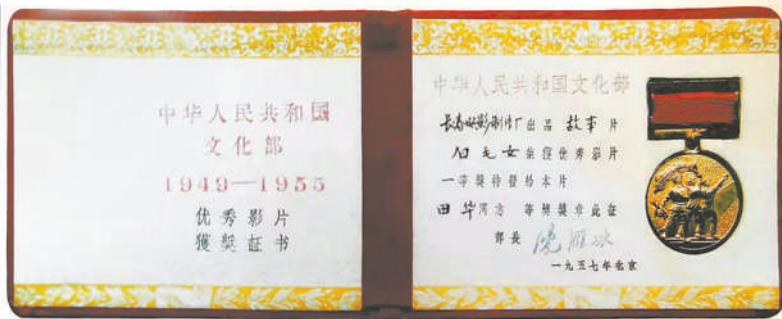 中华人民共和国
文化部
1949—1955
优秀影片
獲奖証书
中华人民共和国文化部
长春电影制片厂出品故事片
白毛女荣獲优秀影片
一等獎特發给本片
田华同志 等獎獎章此証
部長 沈雁冰
一九五七年北京